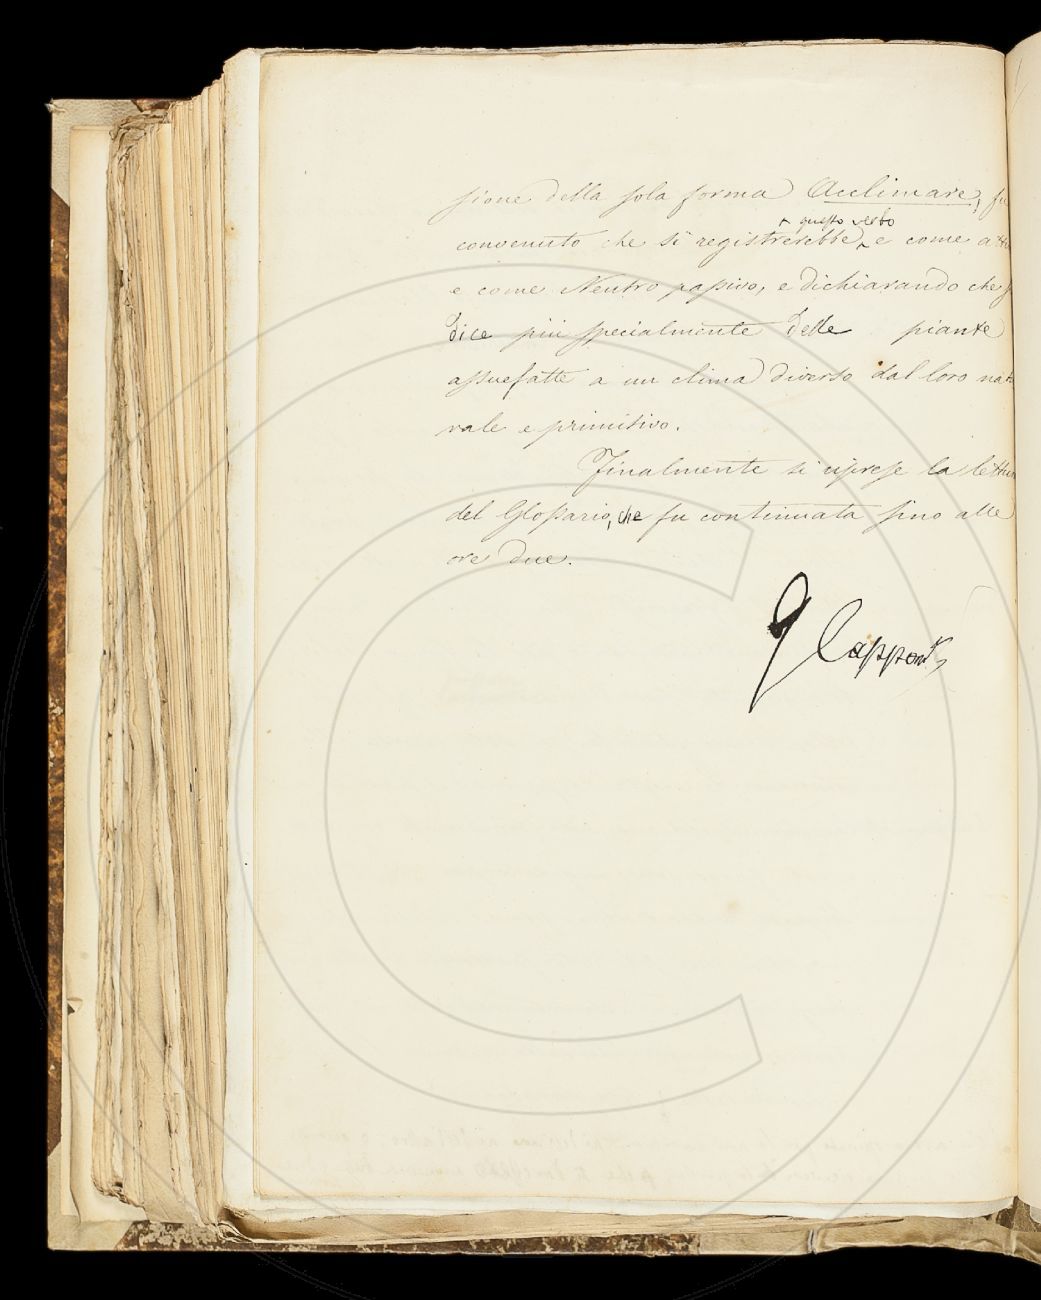 sione della sola forma Acclimare, fu
questo verbo
convenuto che si registrerebbe e come att
e come Neutro passivo, e dichiarando che
dice più specialmente delle piante
assuefatte a un clima diverso dal loro nat
rale e primitivo.
Finalmente si riprese la lettur
del Glossario, che fu continuata sino alle
ore due.
G Capponi